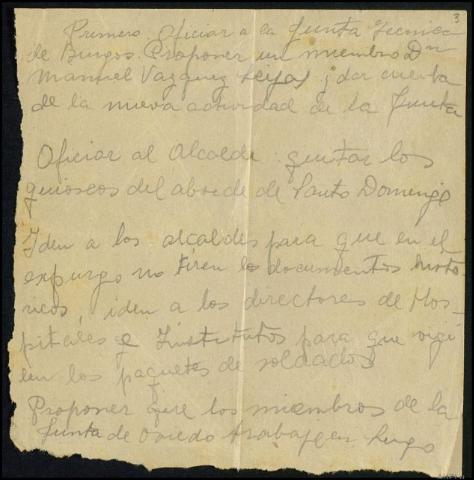 3
Primero. Oficiar a la Junta Tecnica
de Burgos. Proponer un miembro Dn
Manuel Vazquez Seijas y dar cuenta
de la nueva actividad de la Junta
Oficiar al Alcalde: quitar los
quioscos del abside de Santo Domingo
Iden a los alcaldes para que en el
expurgo no tiren los documentos histo
ricos, iden a los directores de Hos-
pitales e Institutos para que vigi
len los paquetes de soldados
Proponer que los miembros de la
Junta de Oviedo trabajen Lugo